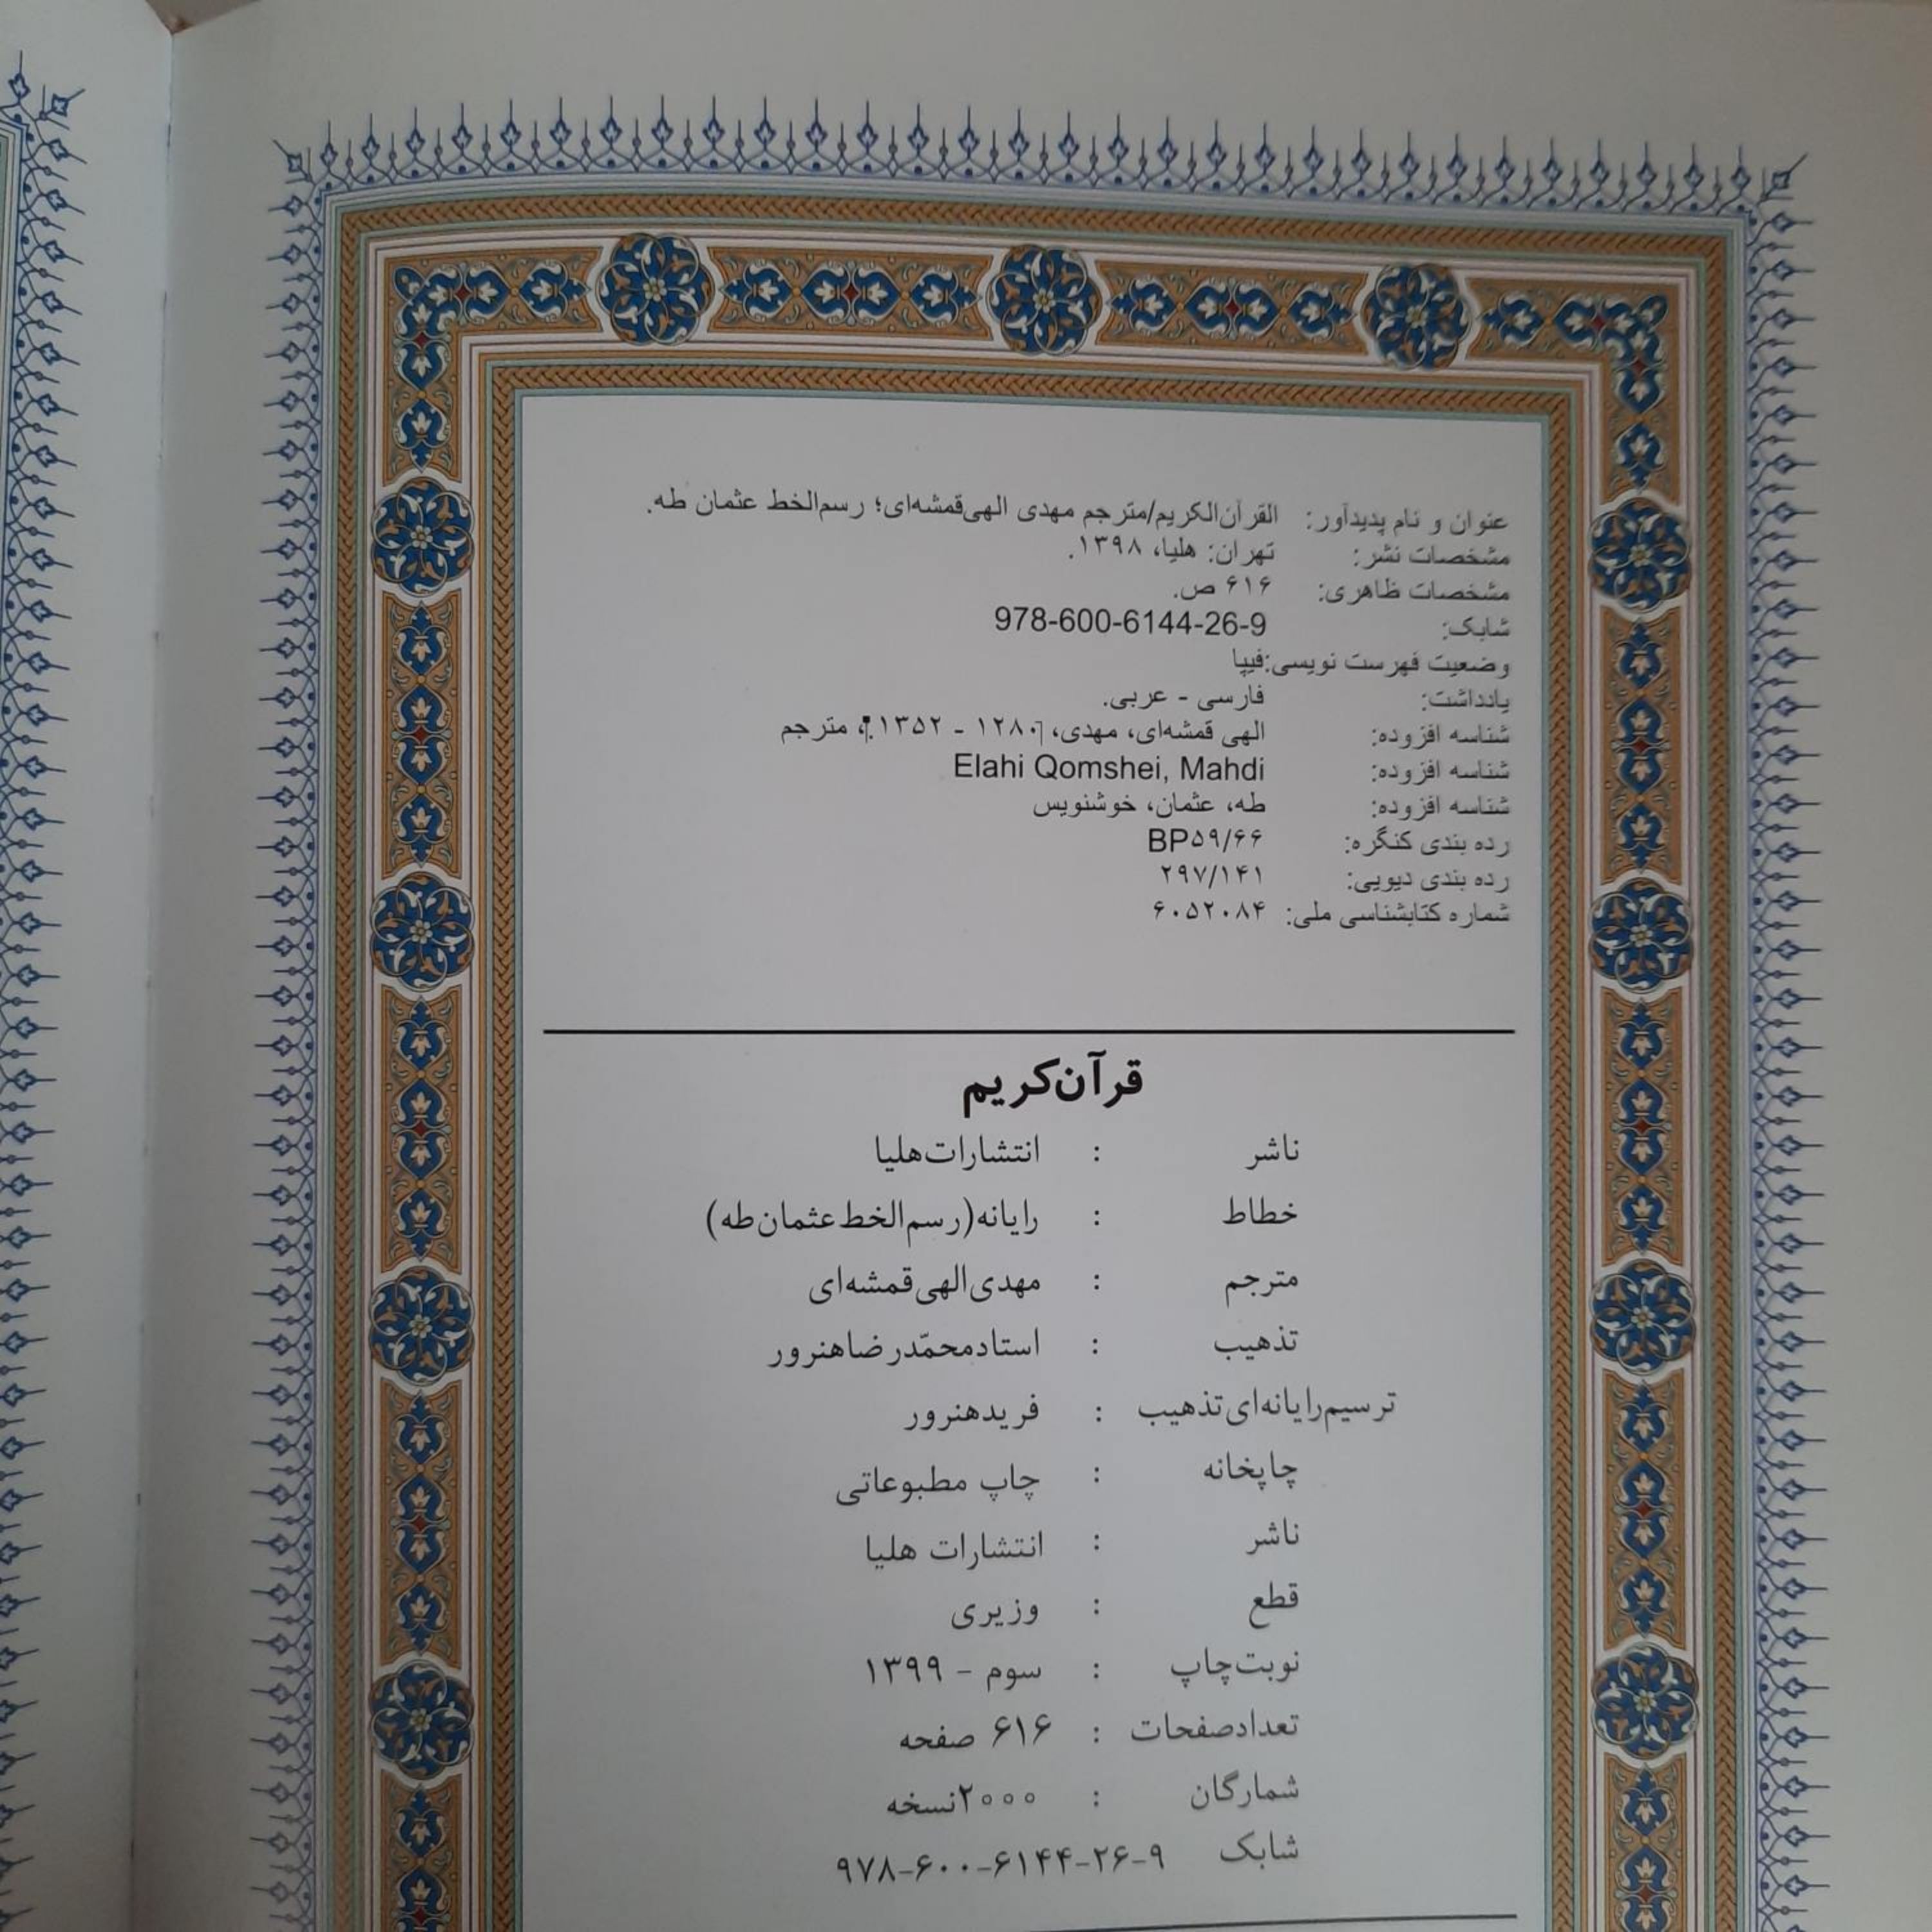 عنوان و نام پدیدآور: القرآن‌الکریم/مترجم مهدی الهی‌قمشه‌ای؛ رسم‌الخط عثمان طه.
مشخصات نشر: تهران: هلیا، ۱۳۹۸.
مشخصات ظاهری: ۶۱۶ ص.
شابک: 978-600-6144-26-9
وضعیت فهرست نویسی:فیپا
یادداشت: فارسی - عربی.
شناسه افزوده: الهی قمشه‌ای، مهدی، ۱۲۸۰ - ۱۳۵۲.، مترجم
شناسه افزوده: Elahi Qomshei, Mahdi
شناسه افزوده: طه، عثمان، خوشنویس
رده بندی کنگره: BP۵۹/۶۶
رده بندی دیویی: ۲۹۷/۱۴۱
شماره کتابشناسی ملی: ۶۰۵۲۰۸۴
قرآن‌کریم
ناشر : انتشارات‌هلیا
خطاط : رایانه(رسم‌الخط‌عثمان‌طه)
مترجم : مهدی‌الهی‌قمشه‌ای
تذهیب : استادمحمّدرضاهنرور
ترسیم‌رایانه‌ای‌تذهیب : فریدهنرور
چاپخانه : چاپ مطبوعاتی
ناشر : انتشارات هلیا
قطع : وزیری
نوبت‌چاپ : سوم - ۱۳۹۹
تعدادصفحات : ۶۱۶ صفحه
شمارگان : ۲۰۰۰نسخه
شابک ۹۷۸-۶۰۰-۶۱۴۴-۲۶-۹